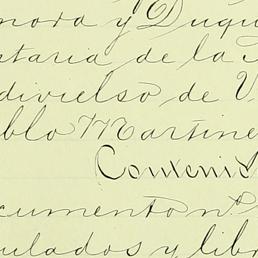 nora y Duqu
staria de la
divielso de V
blo Martine
Conteni
cumento nº
ulados y libr